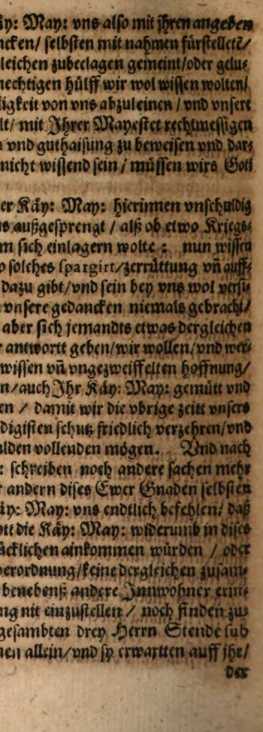 äy: May: vns also mit jhren angeben
ncken/ selbsten mit nahmen fürstellete/
leichen zubeclagen gemeint/oder gelu-
nechtigen hülff wir wol wissen wolten/
ligkeit von vns abzuleinen / vnd vnsert
lt/ mit Jhrer Mayestet rechtmessigen
n vnd guthaisung zu beweisen vnd dar-
nicht wissend sein / müssen wirs Gott
er Käy: May: hierinnen vnschuldig
s außgesprengt / alß ob etwo Kriegs-
m sich einlagern wolte : nun wissen
o solches spargirt/zerrüttung vñ auff-
dazu gibt/vnd sein bey vns wol versi-
vnsere gedancken niemals gebracht/
aber sich jemandts etwas dergleichen
r antwortt geben/wir wollen/vnd wer-
wissen vñ vngezweiffelten hoffnung/
n/auch Jhr Käy: May: gemütt vnd
en / damit wir die vbrige zeitt vnsers
digisten schutz friedlich verzehren/vnd
ulden vollenden mögen. Vnd nach
: schreiben noch andere sachen mehr
r andern dises Ewer Gnaden selbsten
äy: May: vns endtlich befehlen/ daß
ott die Käy: May: widerumb in dises
ücklichen ainkommen würden / oder
verordnung/keine dergleichen zusam-
benebenß andere Innwohner erin-
ng nit einzustellen / noch finden zu-
gesambten drey Herrn Stende sub
nen allein/vnd sy erwartten auff jhr/
der